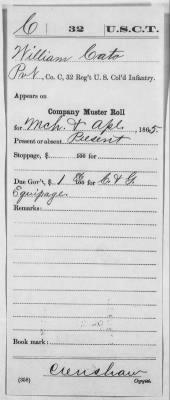 C 32 U.S.C.T.
William Cato
Pvt, Co. C, 32 Reg't U. S. Col'd Infantry.
Appears on
Company Muster Roll
for Mch. & Apl., 1865.
Present or absent Present
Stoppage, $ 100 for
Due Gov't, $ 1 100 for C & G
Equipage
Remarks:
Book mark:
Crenshaw
(358) Copyist.